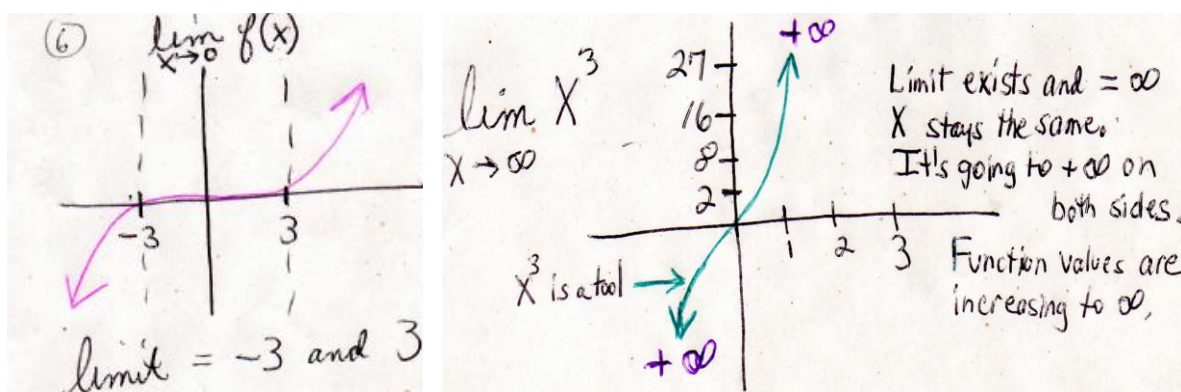 6
lim f(x)
x→0
-3 3
limit = -3 and 3
lim X³
X → ∞
+∞
27
16
8
2
1 2 3
X³ is a tool
+∞
Limit exists and = ∞
X stays the same.
It's going to +∞ on
both sides.
Function values are
increasing to ∞.